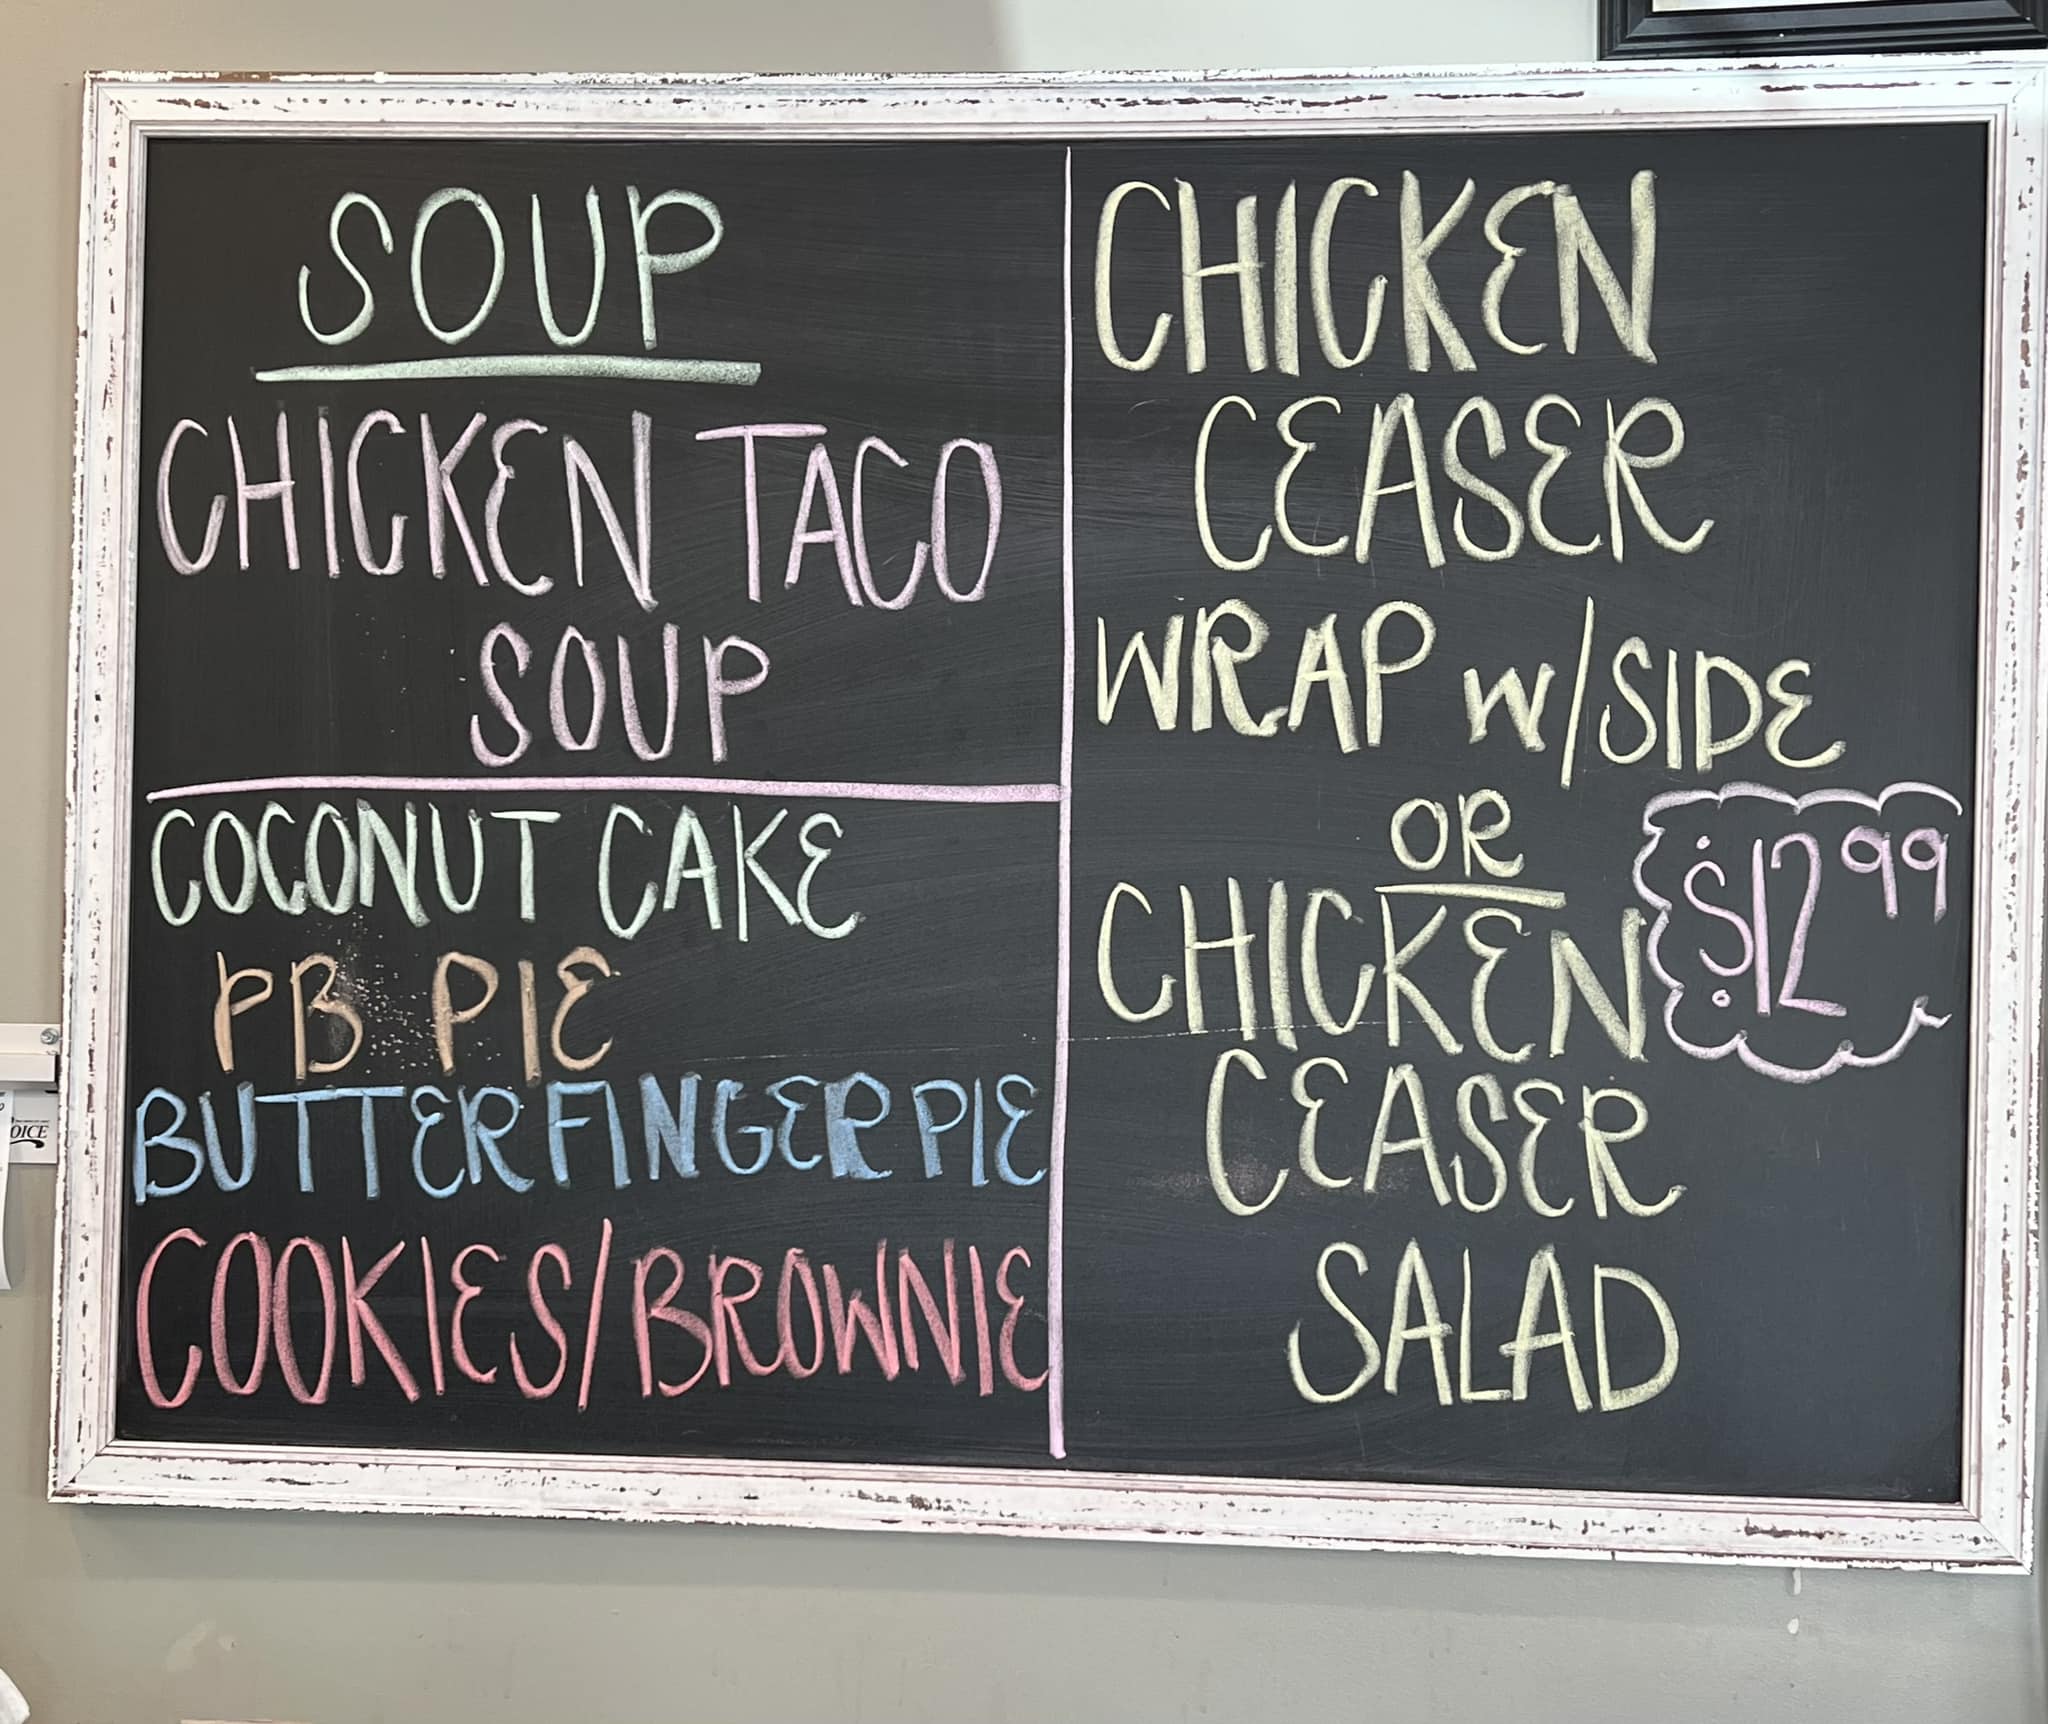 SOUP
CHICKEN TACO
SOUP
COCONUT CAKE
PB PIE
BUTTERFINGER PIE
COOKIES/BROWNIE
CHICKEN
CEASER
WRAP w/SIDE
OR
CHICKEN
$12.99
CEASER
SALAD
OICE